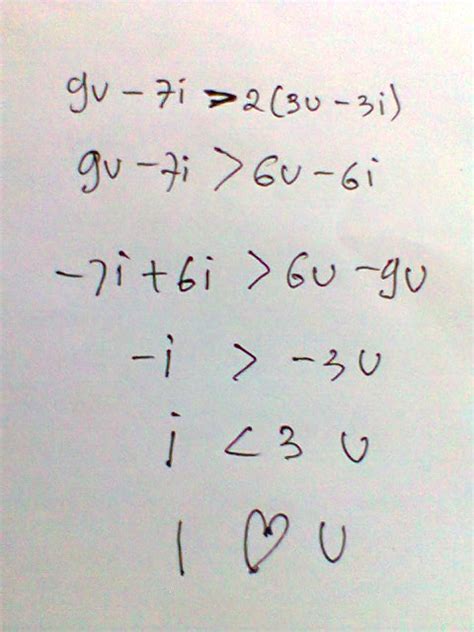 9u - 7i > 2(3u - 3i)
9u - 7i > 6u - 6i
-7i + 6i > 6u - 9u
-i > -3u
i < 3 u
I ♡ U